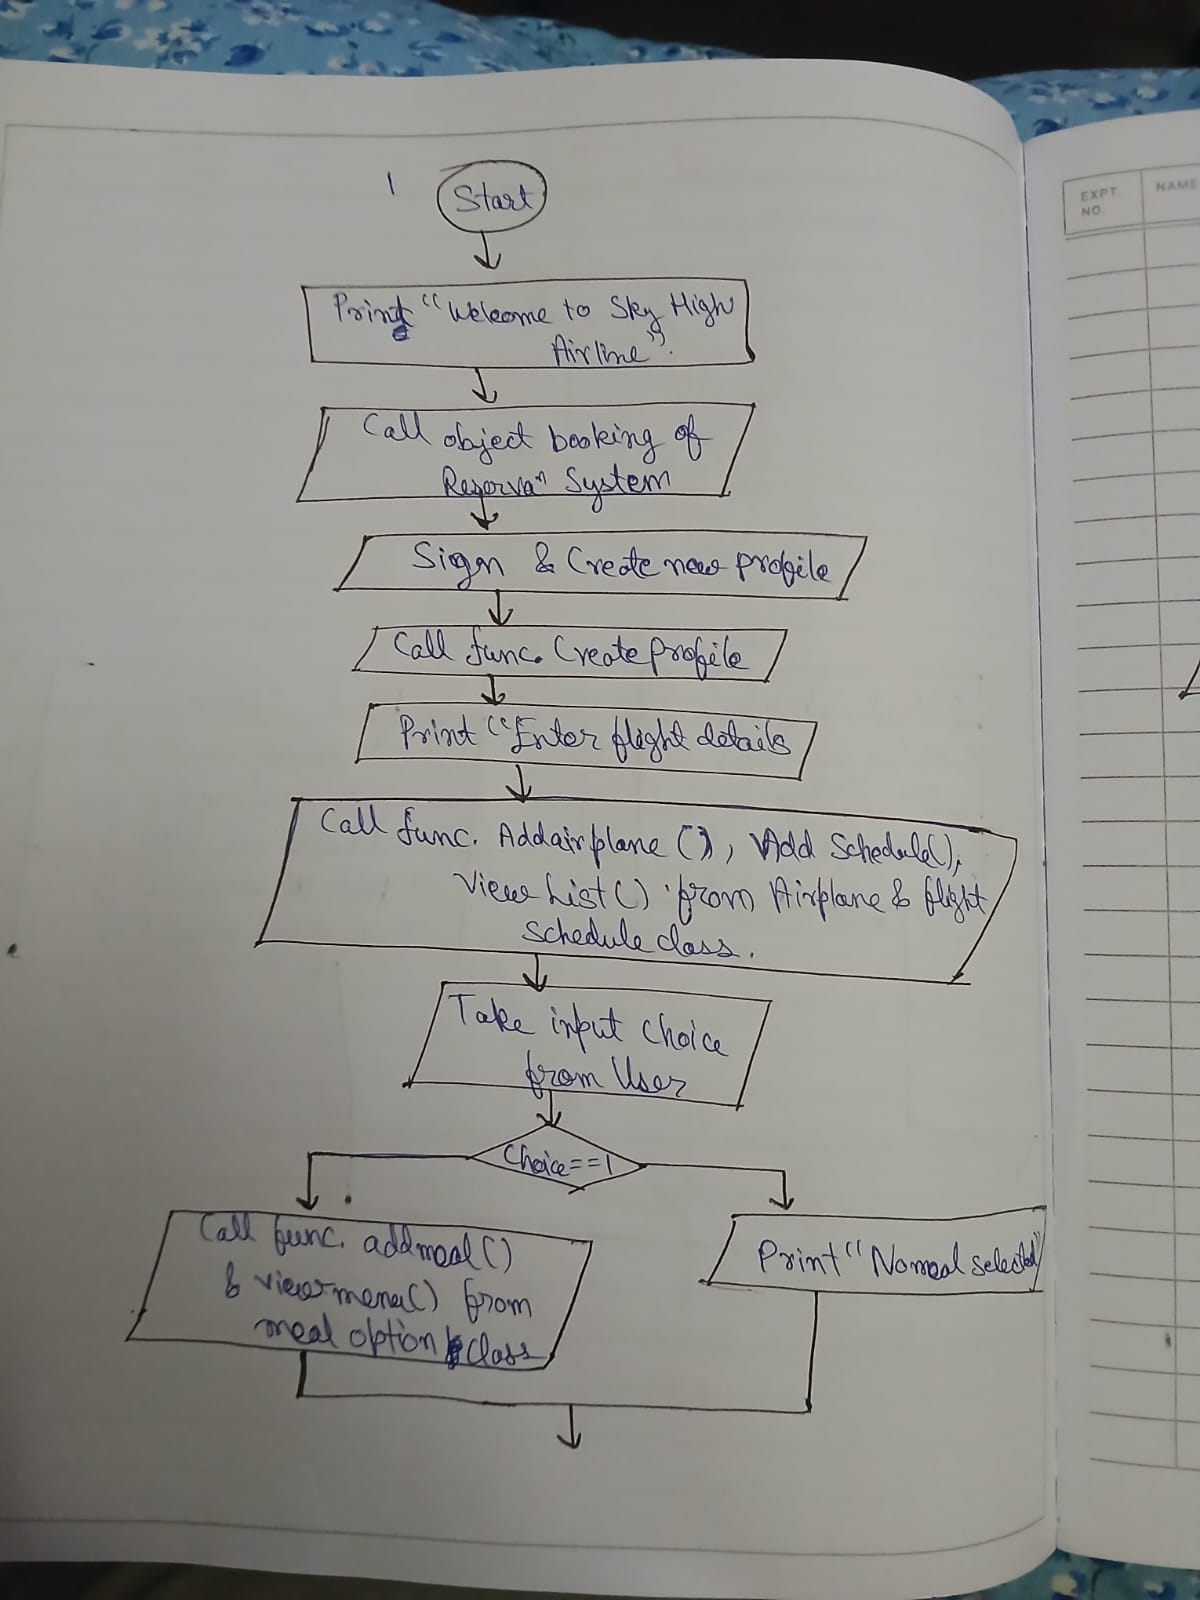 1
Start
Print "Welcome to Sky High
Airline".
Call object booking of
Reservaⁿ System
Sign & Create new profile
Call func. Createprofile
Print "Enter flight details
Call func. Addairplane (), Add Schedule(),
View List() from Airplane & flight
schedule class.
Take input choice
from User
Choice==1
Call func. addmeal()
& viewmenu() from
meal option class
Print "No meal selected"
EXPT.
NO.
NAME